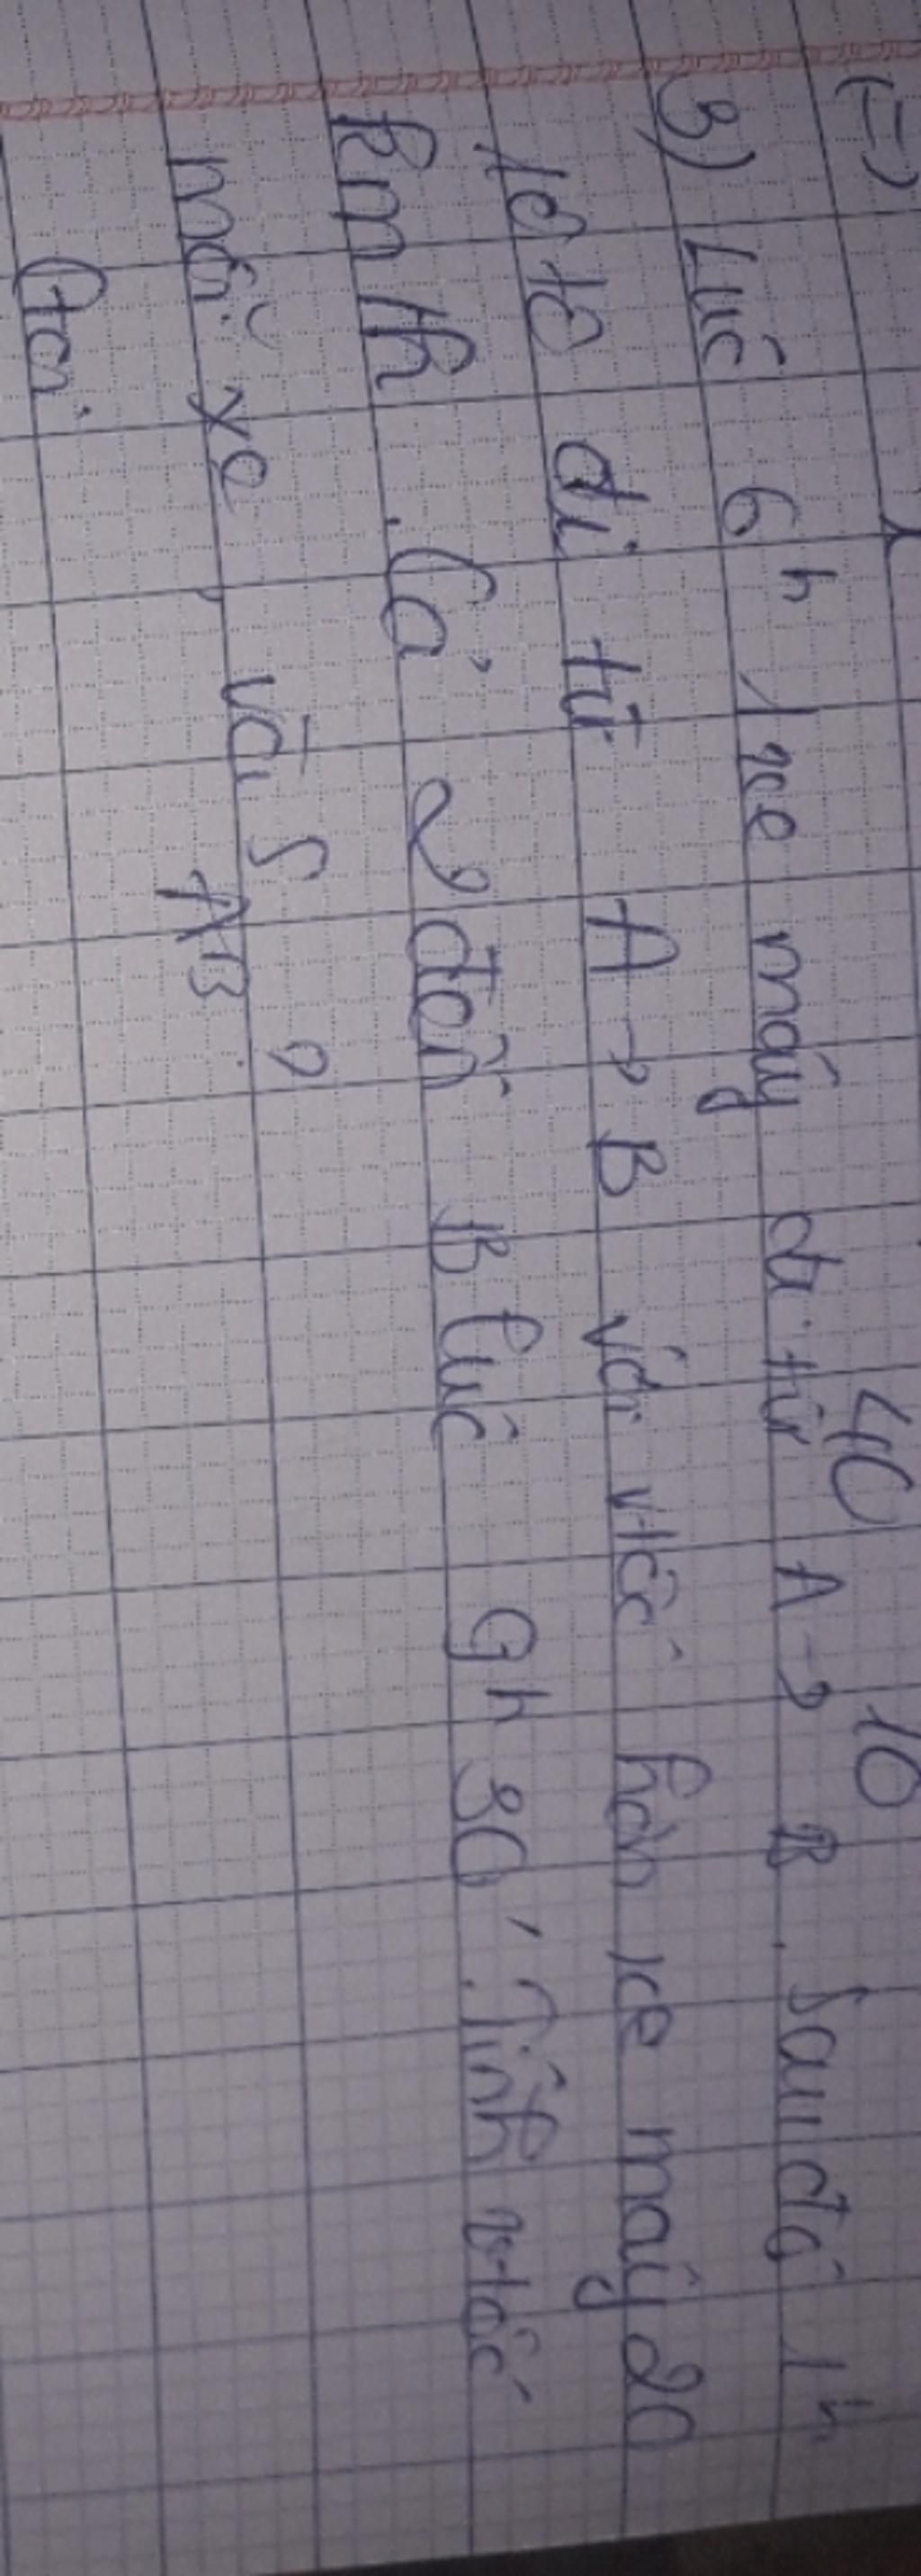 40 10
3) Lúc 6h 1 xe máy đi từ A → B. Sau đó 1h
1 ô tô đi từ A → B với vtốc hơn xe máy 20
km/h. Cả 2 đến B lúc 9h30'. Tính vtốc
mỗi xe, và S AB ?